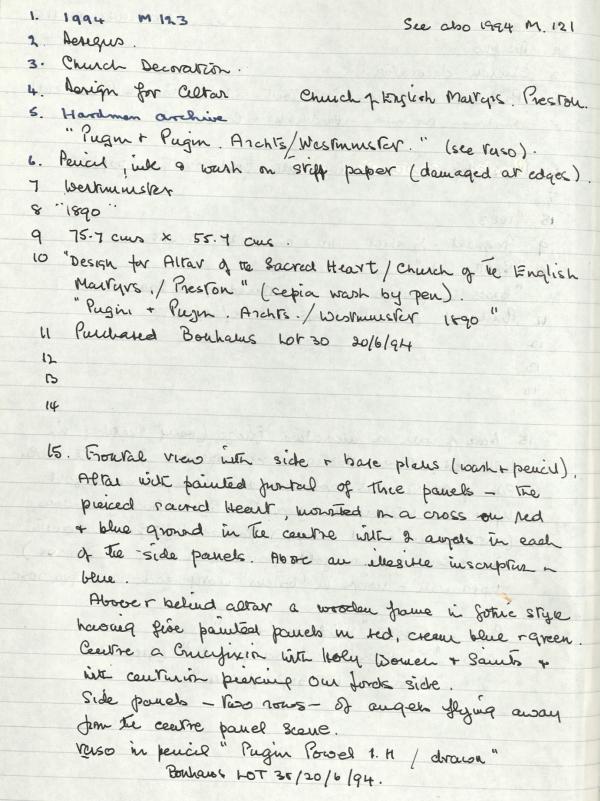 1. 1994 M 123 See also 1994 M. 121
2. Designs.
3. Church Decoration.
4. Design for Altar Church of English Martyrs. Preston.
5. Hardman archive
"Pugin + Pugin. Archts/Westminster." (see verso).
6. Pencil, ink & wash on stiff paper (damaged at edges).
7 Westminster
8 "1890"
9 75.7 cms x 55.7 cms.
10 "Design for Altar of the Sacred Heart / Church of The English
Martyrs / Preston" (sepia wash by pen).
"Pugin + Pugin. Archts. / Westminster 1890"
11 Purchased Bonhams Lot 30 20/6/94
12
13
14
15. Frontal view with side + base plans (wash + pencil).
Altar with painted frontal of three panels – the
pierced sacred Heart, mounted on a cross on red
+ blue ground in the centre with 2 angels in each
of the side panels. Above an illegible inscription in
blue.
Above + behind altar a wooden frame in Gothic style
having five painted panels in red, cream blue + green.
Centre a Crucifixion with Holy Women + Saints +
with centurion piercing Our Lords side.
Side panels – two rows – of angels flying away
from the centre panel scene.
Verso in pencil "Pugin Powel J. H / drawn"
Bonhams LOT 35/20/6/94.